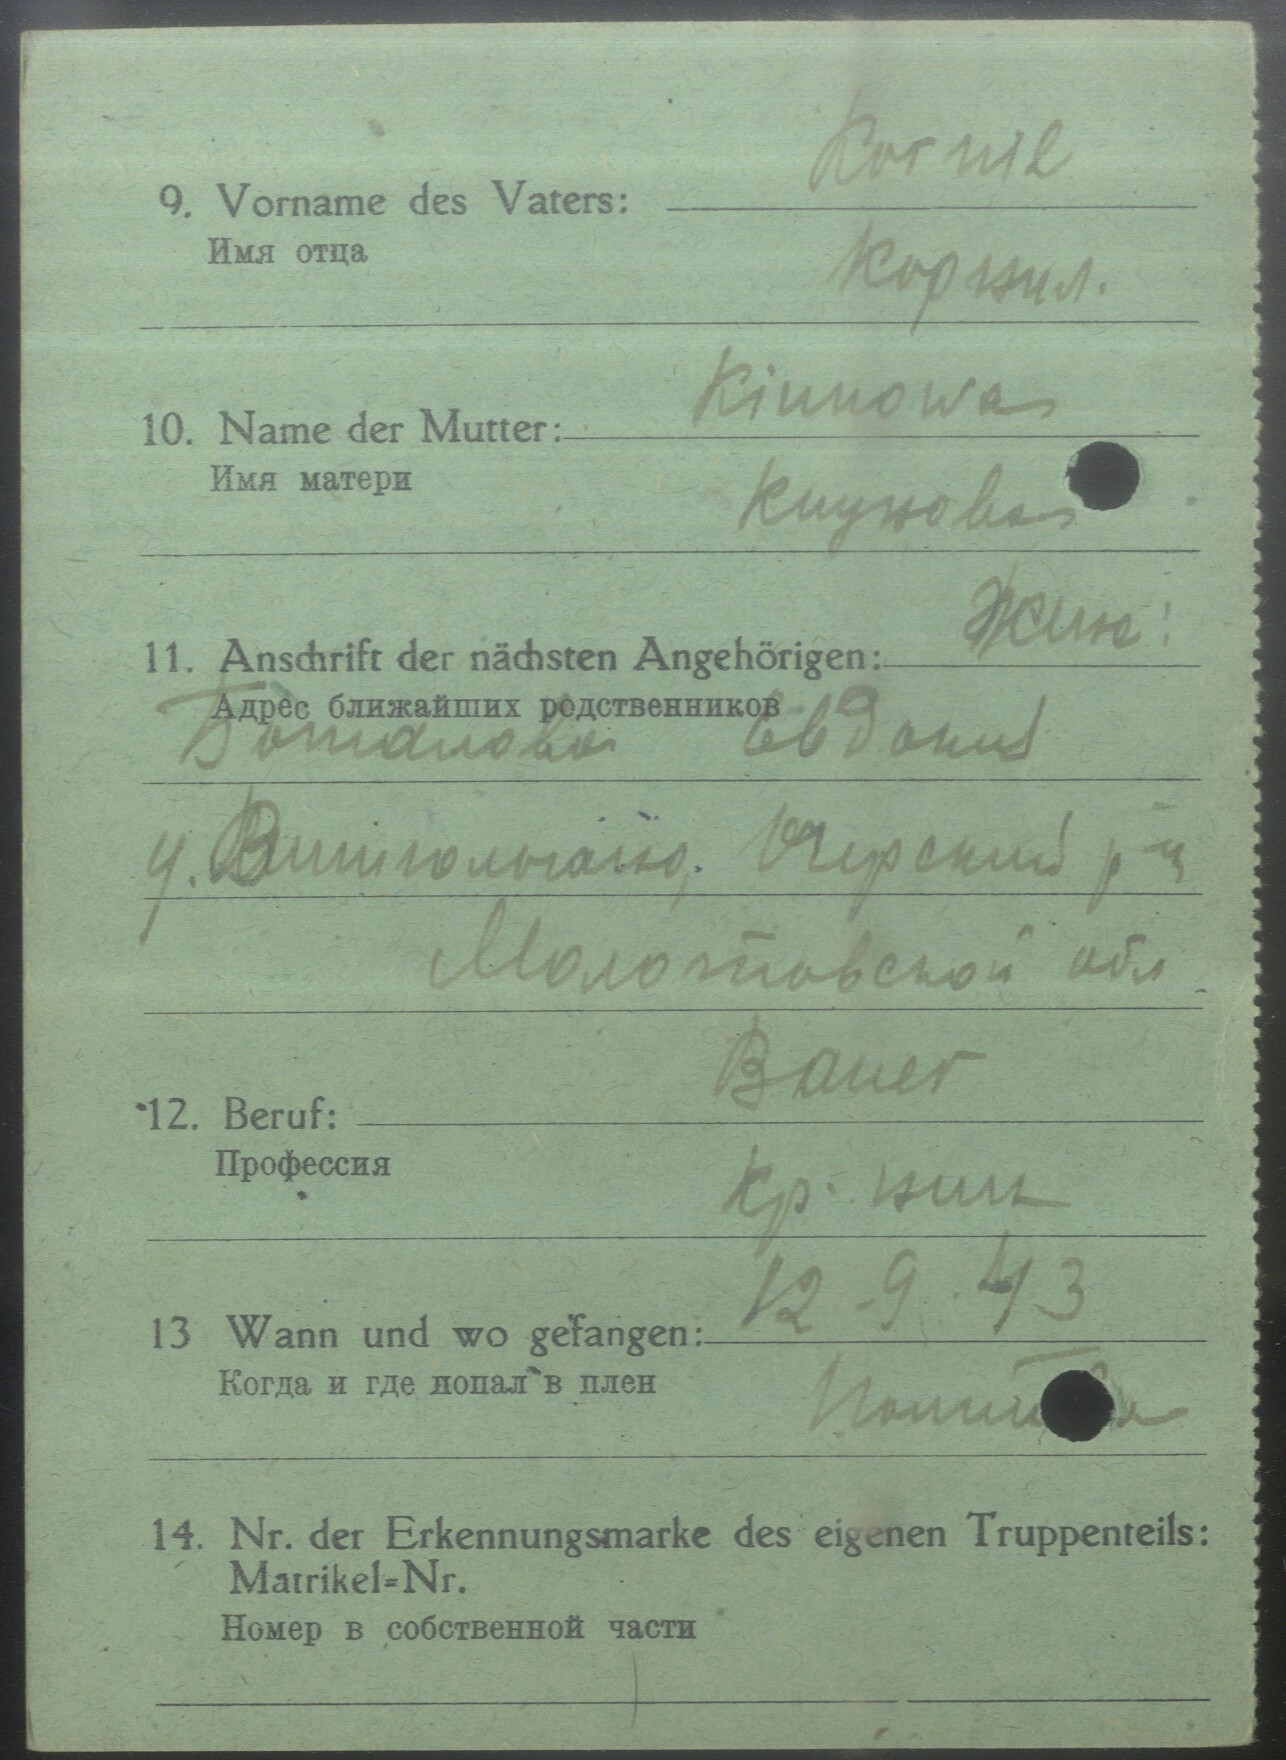 Kornil
9. Vorname des Vaters:
Имя отца
Корнил.
Kinnowa
10. Name der Mutter:
Имя матери
Жена:
11. Anschrift der nächsten Angehörigen:
Адрес ближайших родственников
Боталова Евдокия
Очерский р-н
Молотовской обл
Bauer
12. Beruf:
Профессия
Кр-ник
12-9.43
13 Wann und wo gefangen:
Когда и где попал в плен
14. Nr. der Erkennungsmarke des eigenen Truppenteils:
Matrikel=Nr.
Номер в собственной части